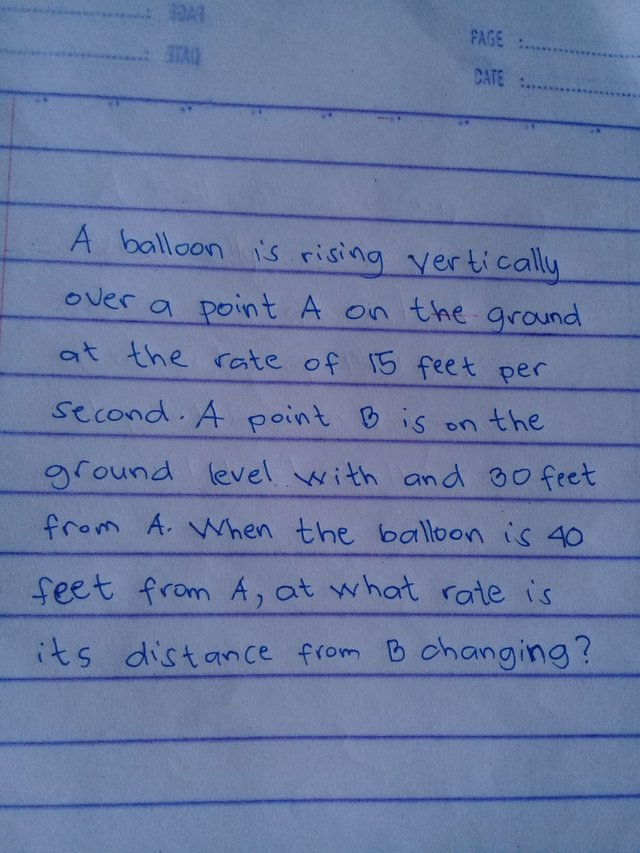 PAGE :
DATE :
A balloon is rising vertically
over a point A on the ground
at the rate of 15 feet per
second. A point B is on the
ground level with and 30 feet
from A. When the balloon is 40
feet from A, at what rate is
its distance from B changing?